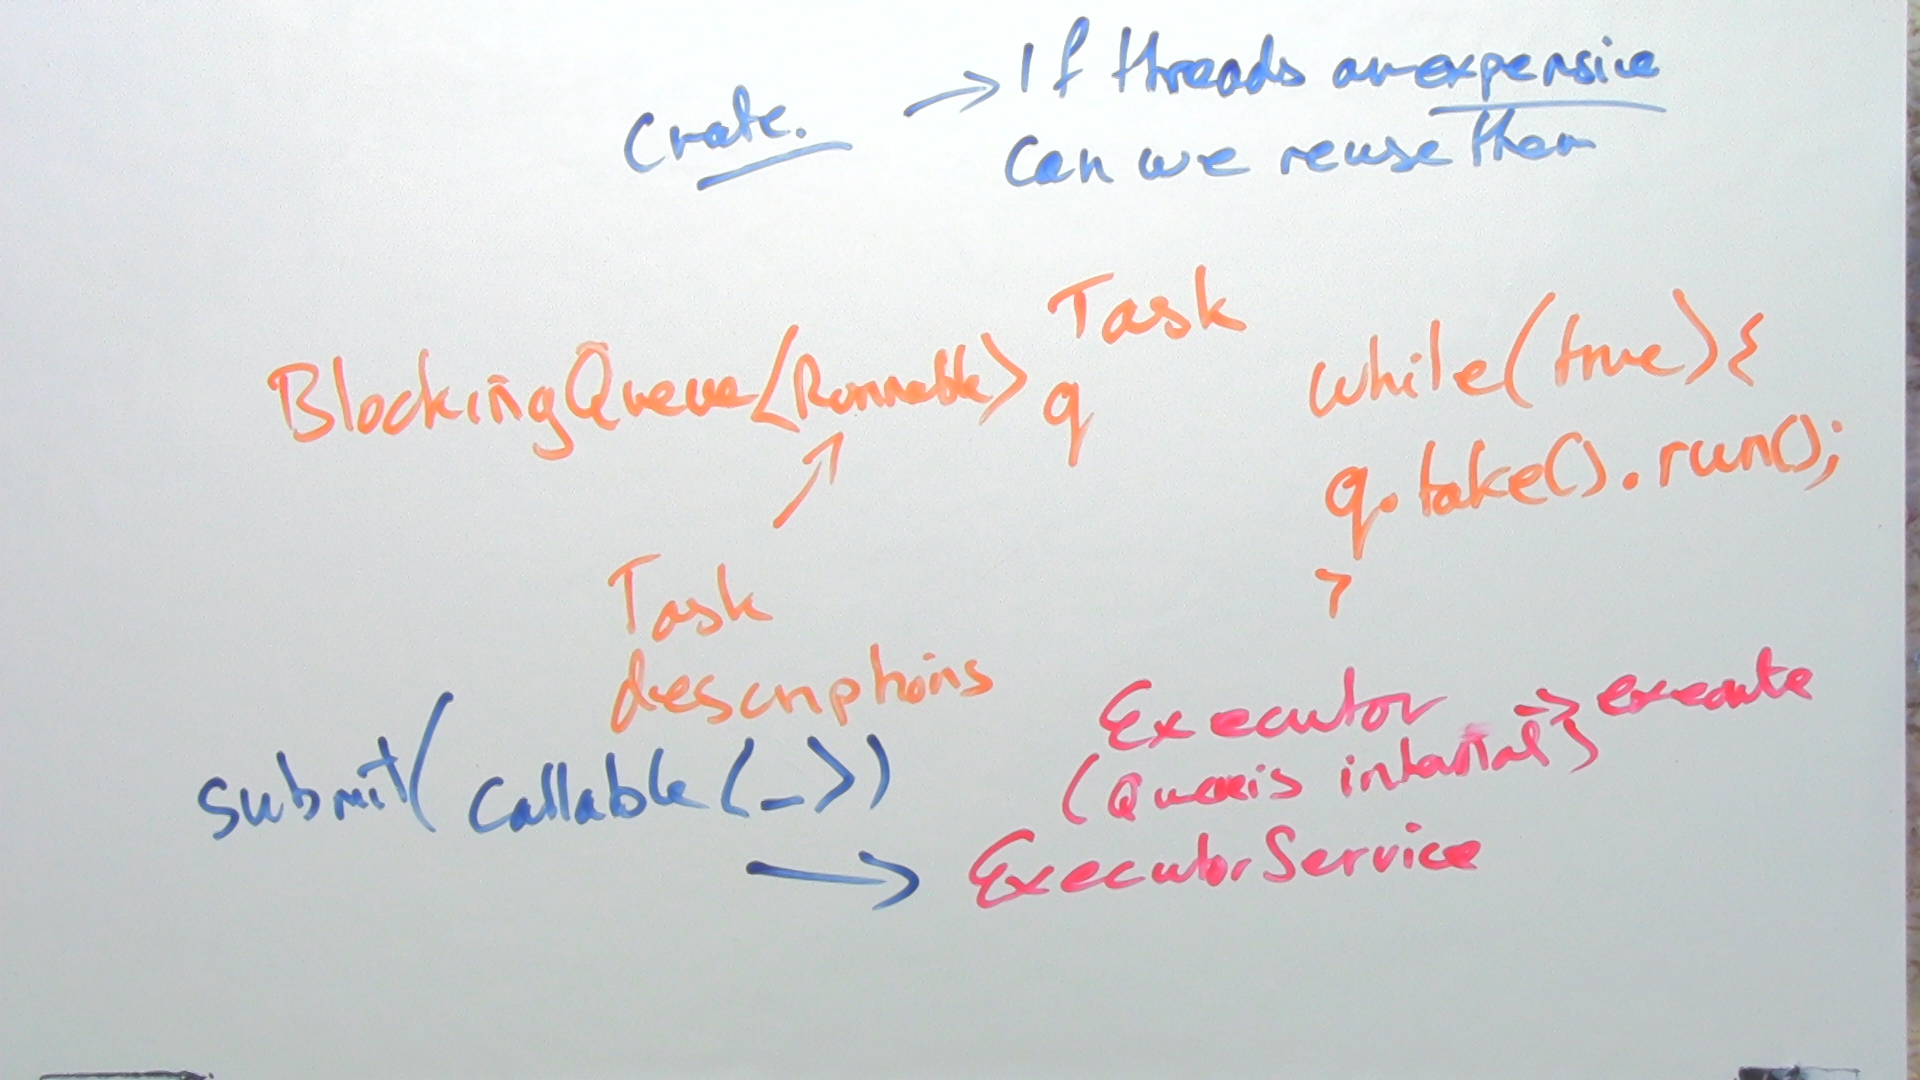 If threads are expensive
Create.
can we reuse them
Task
BlockingQueue<Runnable> q
while(true){
q.take().run();
}
Task
descriptions
Executor → execute
(Queue is internal)
submit(Callable<_>)
→ ExecutorService